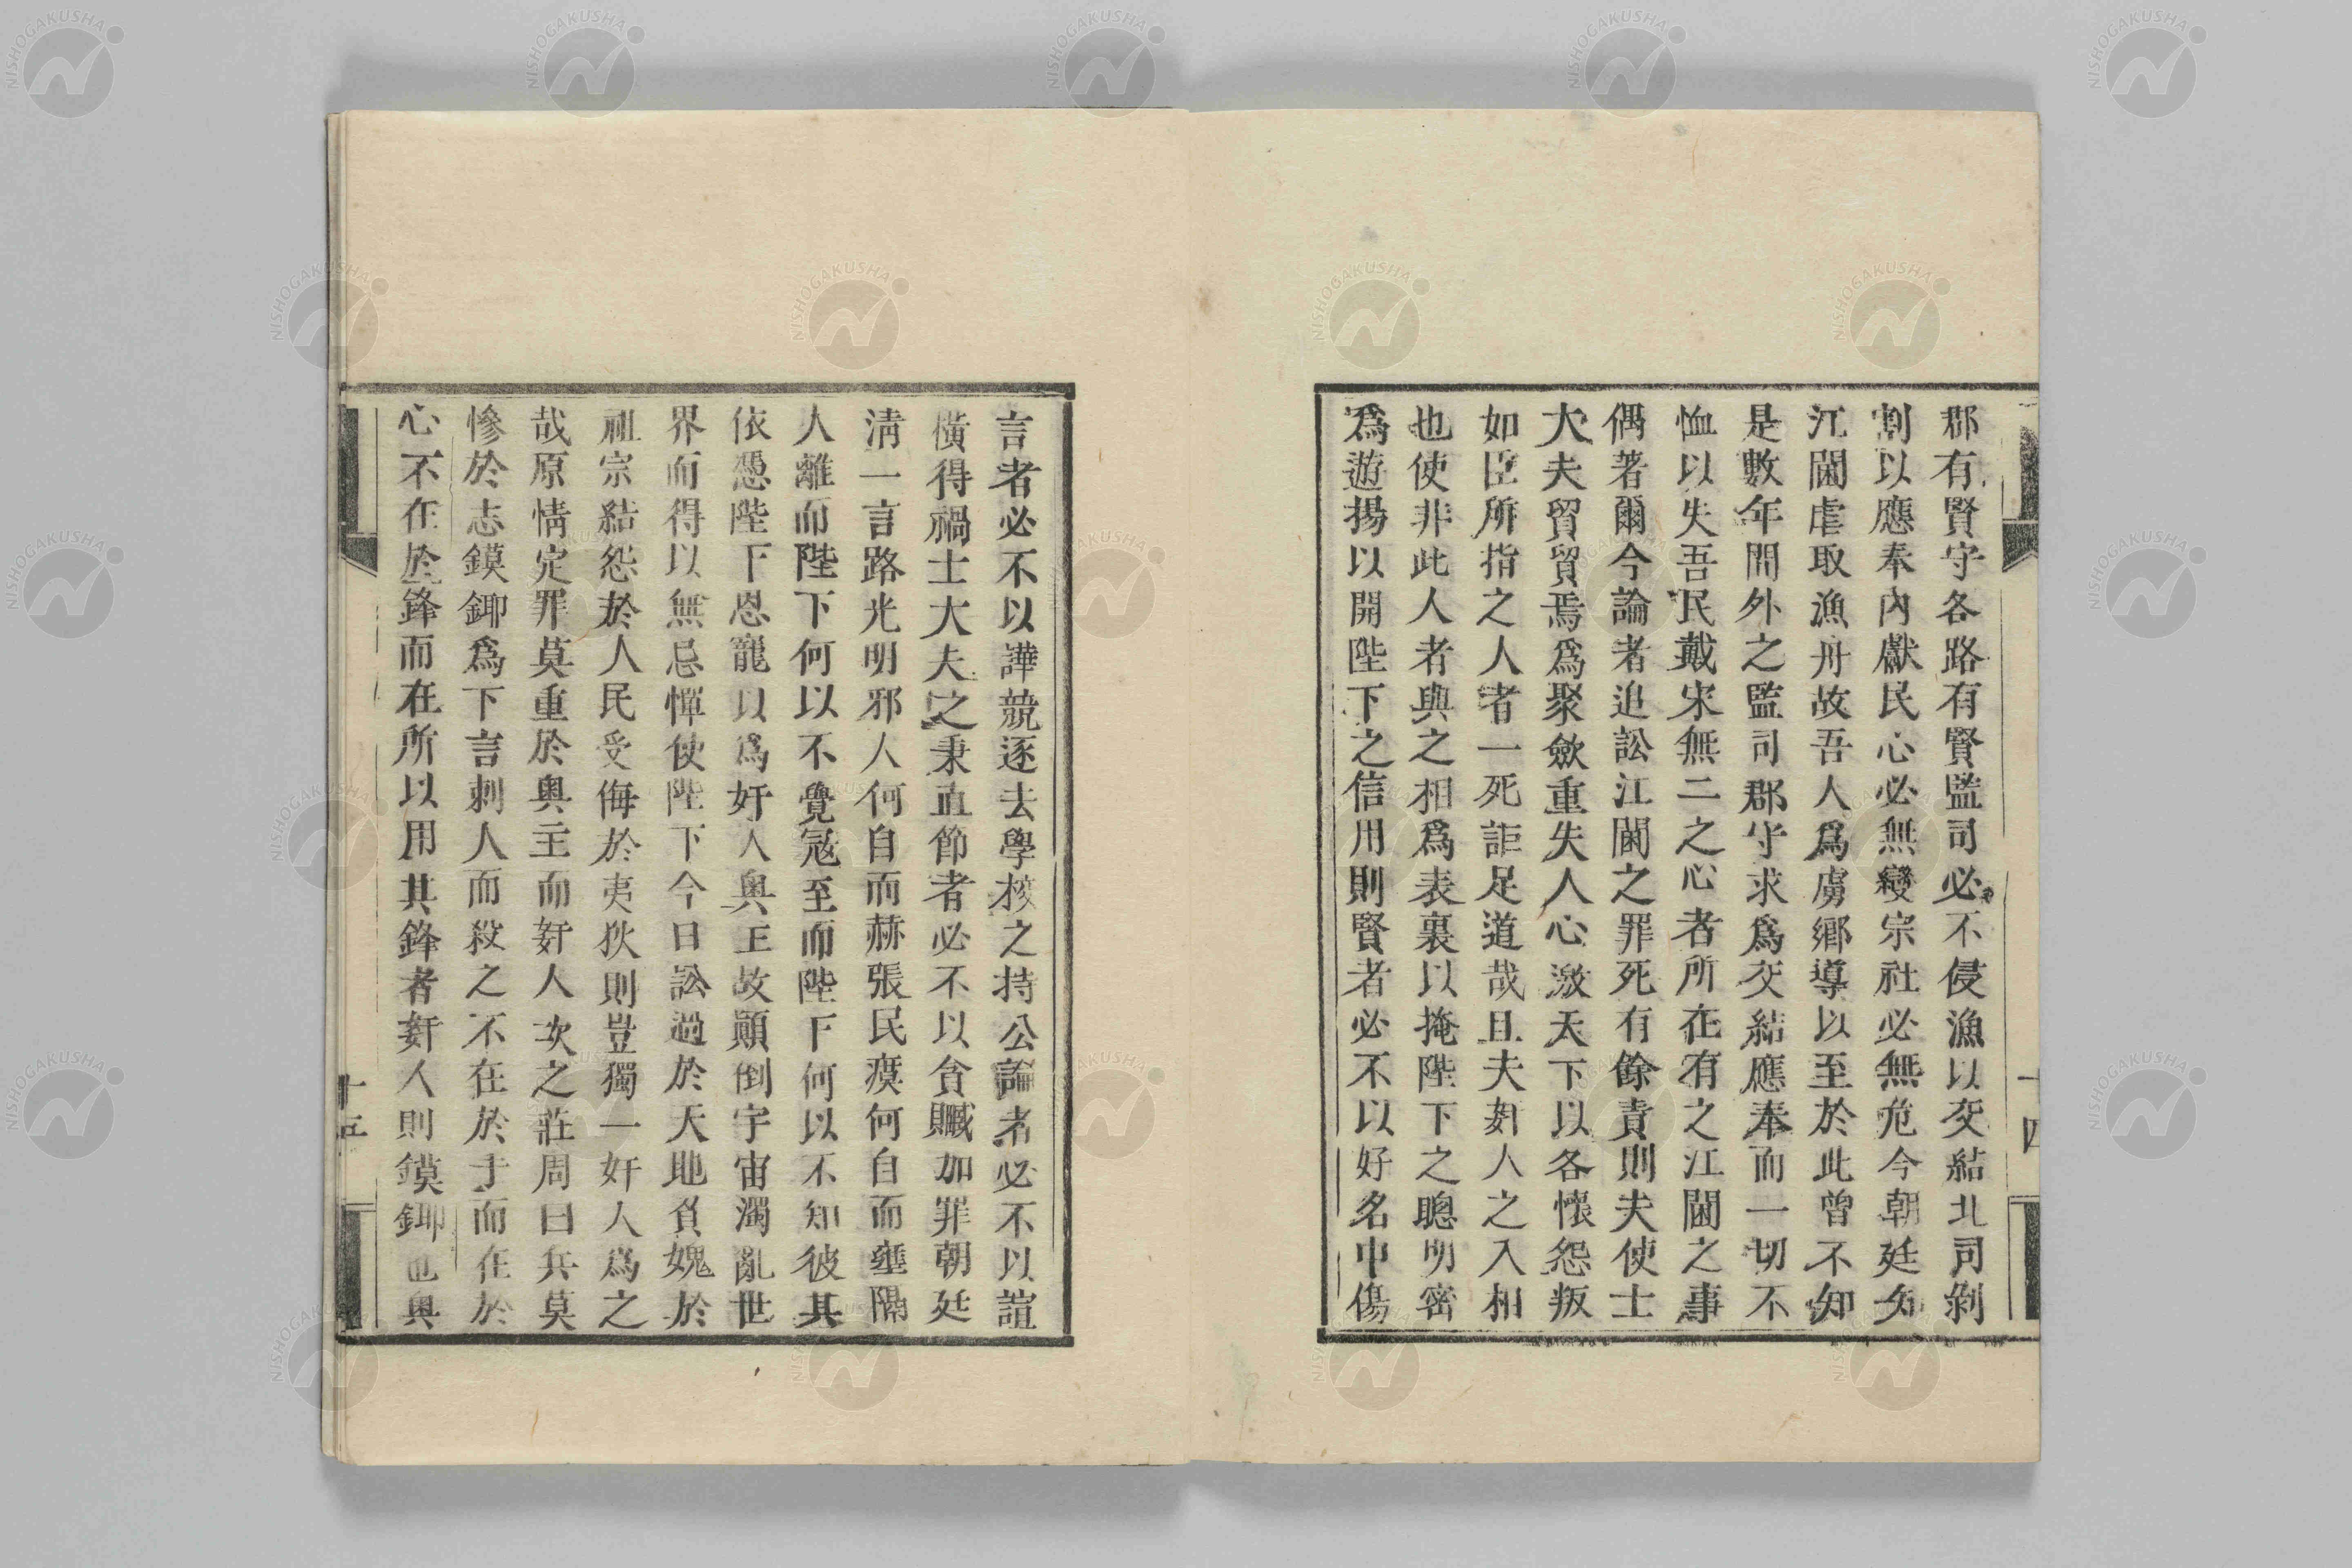 郡有賢守各路有賢監司必不侵漁以交結北司剝
割以應奉內獻民心必無變宗社必無危今朝廷知
江閫虐取漁舟故吾人爲虜鄉導以至於此曾不知
是數年間外之監司郡守求爲交結應奉而一切不
恤以失吾民戴宋無二之心者所在有之江閫之事
偶著爾今論者追訟江閫之罪死有餘責則夫使士
大夫貿貿焉爲聚斂重失人心激天下以各懷怨叛
如臣所指之人者一死詎足道哉且夫奸人之入相
也使非此人者與之相爲表裏以掩陛下之聰明密
爲遊揚以開陛下之信用則賢者必不以好名中傷
十四
言者必不以譁競逐去學校之持公論者必不以誼
橫得禍士大夫之秉直節者必不以貪贓加罪朝廷
淸一言路光明邪人何自而赫張民瘼何自而壅隔
人離而陛下何以不覺冦至而陛下何以不知彼其
依憑陛下恩寵以爲奸人奧主故顚倒宇宙濁亂世
界而得以無忌憚使陛下今日訟過於天地負媿於
祖宗結怨於人民受侮於夷狄則豈獨一奸人爲之
哉原情定罪莫重於奧主而奸人次之莊周曰兵莫
慘於志鏌鋣爲下言刺人而殺之不在於手而在於
心不在於鋒而在所以用其鋒者奸人則鏌鋣也奧
十五
NISHOGAKUSHA